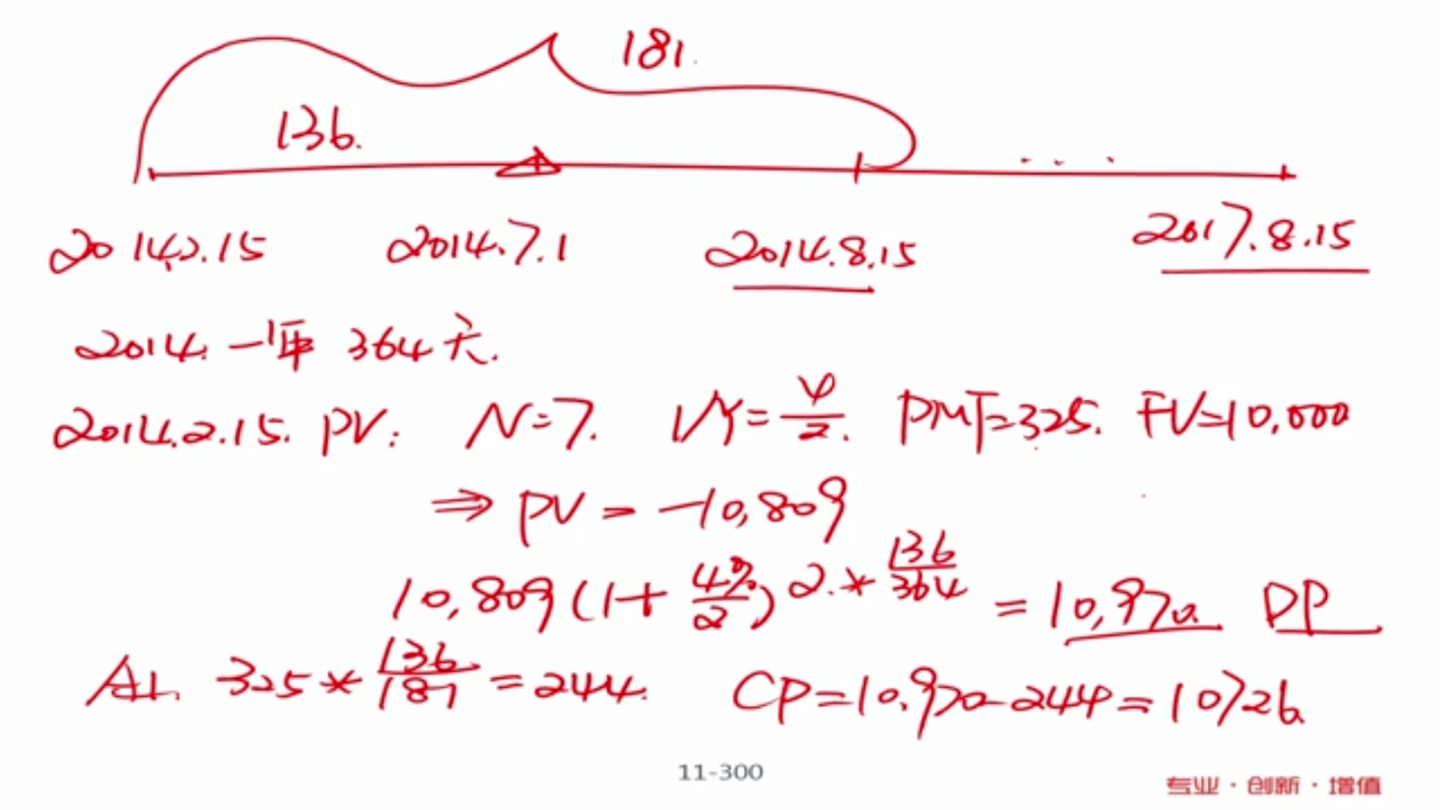 181.
136.
...
2014.2.15 2014.7.1 2014.8.15 2017.8.15
2014. 一年 364天.
2014.2.15. PV: N=7. I/Y=4/2. PMT=325. FV=10,000
⇒ PV = -10,809
10,809(1+4%/2)^2.*136/364 = 10,970. DP
AI. 325*136/181=244. CP=10,970-244=10726.
11-300
专业·创新·增值